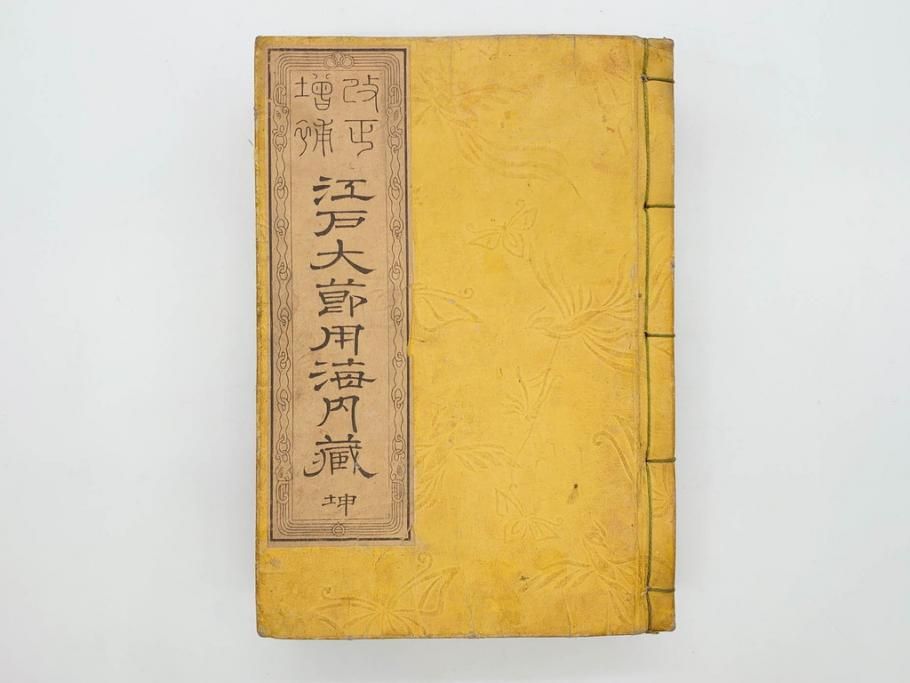 改正
増補
江戸大節用海内蔵
坤